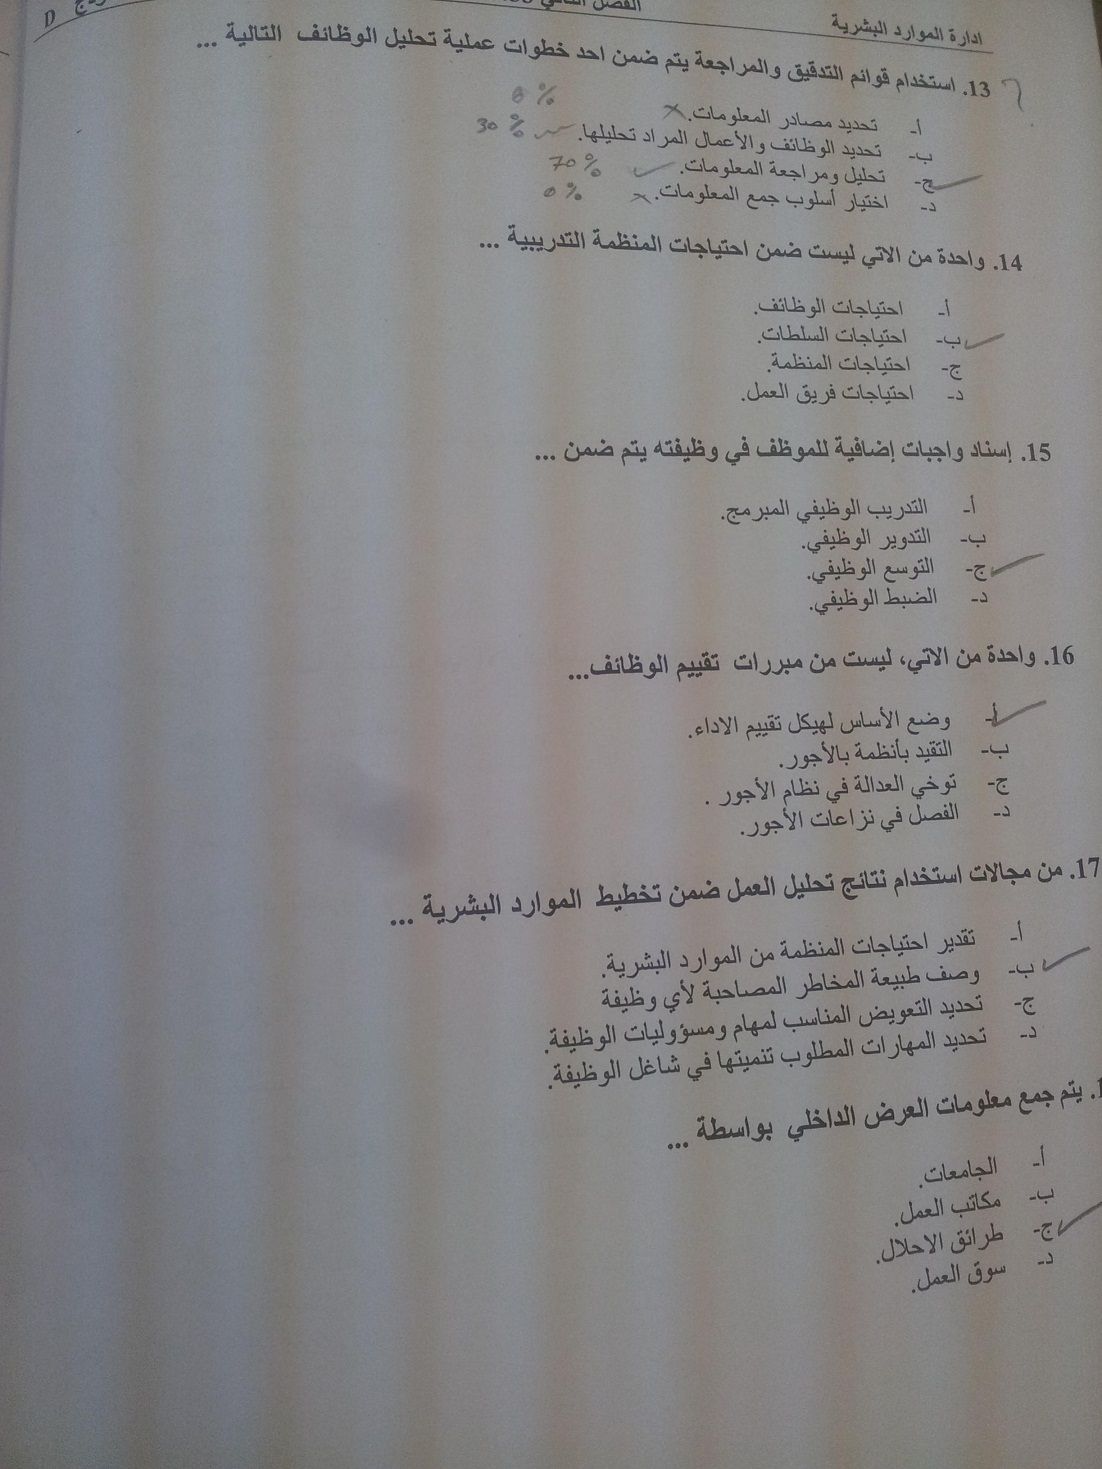 ادارة الموارد البشرية
الفصل
D
13. استخدام قوائم التدقيق والمراجعة يتم ضمن احد خطوات عملية تحليل الوظائف التالية ...
أ- تحديد مصادر المعلومات. 0 %
ب- تحديد الوظائف والأعمال المراد تحليلها. 30 %
ج- تحليل ومراجعة المعلومات. 70 %
د- اختيار أسلوب جمع المعلومات. 0 %
14. واحدة من الاتي ليست ضمن احتياجات المنظمة التدريبية ...
أ- احتياجات الوظائف.
ب- احتياجات السلطات.
ج- احتياجات المنظمة.
د- احتياجات فريق العمل.
15. إسناد واجبات إضافية للموظف في وظيفته يتم ضمن ...
أ- التدريب الوظيفي المبرمج.
ب- التدوير الوظيفي.
ج- التوسع الوظيفي.
د- الضبط الوظيفي.
16. واحدة من الاتي، ليست من مبررات تقييم الوظائف...
أ- وضع الأساس لهيكل تقييم الاداء.
ب- التقيد بأنظمة بالأجور.
ج- توخي العدالة في نظام الأجور .
د- الفصل في نزاعات الأجور.
17. من مجالات استخدام نتائج تحليل العمل ضمن تخطيط الموارد البشرية ...
أ- تقدير احتياجات المنظمة من الموارد البشرية.
ب- وصف طبيعة المخاطر المصاحبة لأي وظيفة
ج- تحديد التعويض المناسب لمهام ومسؤوليات الوظيفة.
د- تحديد المهارات المطلوب تنميتها في شاغل الوظيفة.
يتم جمع معلومات العرض الداخلي بواسطة ...
أ- الجامعات.
ب- مكاتب العمل.
ج- طرائق الاحلال.
د- سوق العمل.